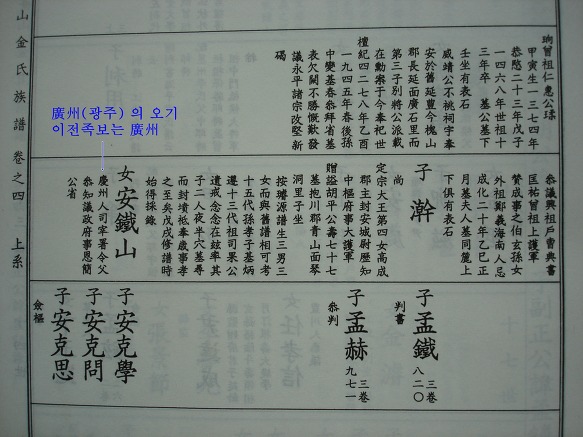 珦曾祖仁惠公瑈
甲寅生一三七四年
恭愍二十三年戊子
一四六八年世祖十
三年卒 墓公墓下
壬坐有表石
咸靖公不祧祠宇奉
安於舊延豊今槐山
郡長延面廣石里而
第三子別將公派載
在勳案于今奉祀世
檀紀四二七八年乙酉
一九四五年春後孫
中變基春恭拜省墓
表欠闕不勝慨歎發
議永平諸宗改堅新
碣
叅議興祖戶曹典書
匡祐曾祖上護軍
贊成事之伯玄孫女
外祖鄭義海南人忌
成化二十年乙巳正
月基夫人墓同麓上
下俱有表石
子 澣
尚
定宗大王第四女高成
郡主封安城尉歷知
中樞府事大護軍
贈諡胡平公壽七十七
墓抱川郡青山面琴
洞里子坐
按璿源譜生三男三
女而與舊譜相可考
十五代孫孝子基炳
遵十三代祖司果公
遺戒念念在玆率其
子二人夜半穴墓尋
而封墳祗奉歲事孝
之至矣戊戌修譜時
始得採錄
女安鐵山
慶州人司宰署令父
叅知議政府事恩簡
公省
子孟鐵
判書
三巻
八二〇
子孟赫
叅判
三巻
九七一
子安克學
子安克問
子安克思
僉樞
山金氏族譜 卷之四 上系
廣州(광주) 의 오기
이전족보는 廣州